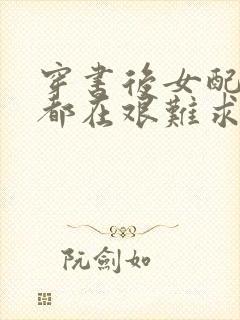 穿書後女配
都在艱難求
阮劍如